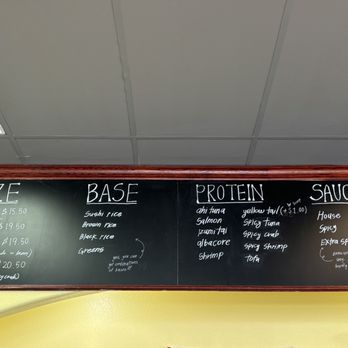 ZE
$15.50
$19.50
$19.50
$20.50
BASE
Sushi rice
Brown rice
Black rice
Greens
yes, you can
PROTEIN
ahi tuna
Salmon
izumi tai
albacore
shrimp
yellow tail (+$1.00)
Spicy Tuna
Spicy crab
Spicy shrimp
tofu
SAUC
House
Spicy
Extra sp